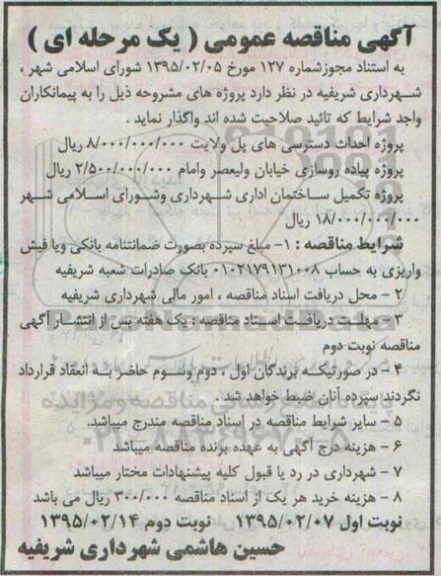 آگهی مناقصه عمومی ( یک مرحله ای )
به استناد مجوزشماره ۱۲۷ مورخ ۱۳۹۵/۰۲/۰۵ شورای اسلامی شهر ،
شهرداری شریفیه در نظر دارد پروژه های مشروحه ذیل را به پیمانکاران
واجد شرایط که تائید صلاحیت شده اند واگذار نماید .
پروژه احداث دسترسی های پل ولایت ۸/۰۰۰/۰۰۰/۰۰۰ ریال
پروژه پیاده روسازی خیابان ولیعصر وامام ۲/۵۰۰/۰۰۰/۰۰۰ ریال
پروژه تکمیل ساختمان اداری شهرداری وشورای اسلامی شهر
۱۸/۰۰۰/۰۰۰/۰۰۰ ریال
شرایط مناقصه : ۱- مبلغ سپرده بصورت ضمانتنامه بانکی ویا فیش
واریزی به حساب ۰۱۰۲۱۷۹۱۳۱۰۰۸ بانک صادرات شعبه شریفیه
۲ - محل دریافت اسناد مناقصه ، امور مالی شهرداری شریفیه
۳ - مهلت دریافت اسناد مناقصه : یک هفته پس از انتشار آگهی
مناقصه نوبت دوم
۴ - در صورتیکه برندگان اول ، دوم وسوم حاضر به انعقاد قرارداد
نگردند سپرده آنان ضبط خواهد شد .
۵ - سایر شرایط مناقصه در اسناد مناقصه مندرج میباشد.
۶ - هزینه درج آگهی به عهده برنده مناقصه میباشد
۷ - شهرداری در رد یا قبول کلیه پیشنهادات مختار میباشد
۸ - هزینه خرید هر یک از اسناد مناقصه ۳۰۰/۰۰۰ ریال می باشد
نوبت اول ۱۳۹۵/۰۲/۰۷ نوبت دوم ۱۳۹۵/۰۲/۱۴
حسین هاشمی شهرداری شریفیه